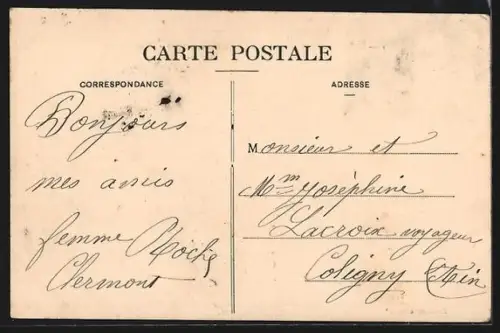 CARTE POSTALE
CORRESPONDANCE
Bonjours
mes amis
femme Roche
Clermont
ADRESSE
Monsieur et
Mme Joséphine
Lacroix voyageur
Coligny Ain